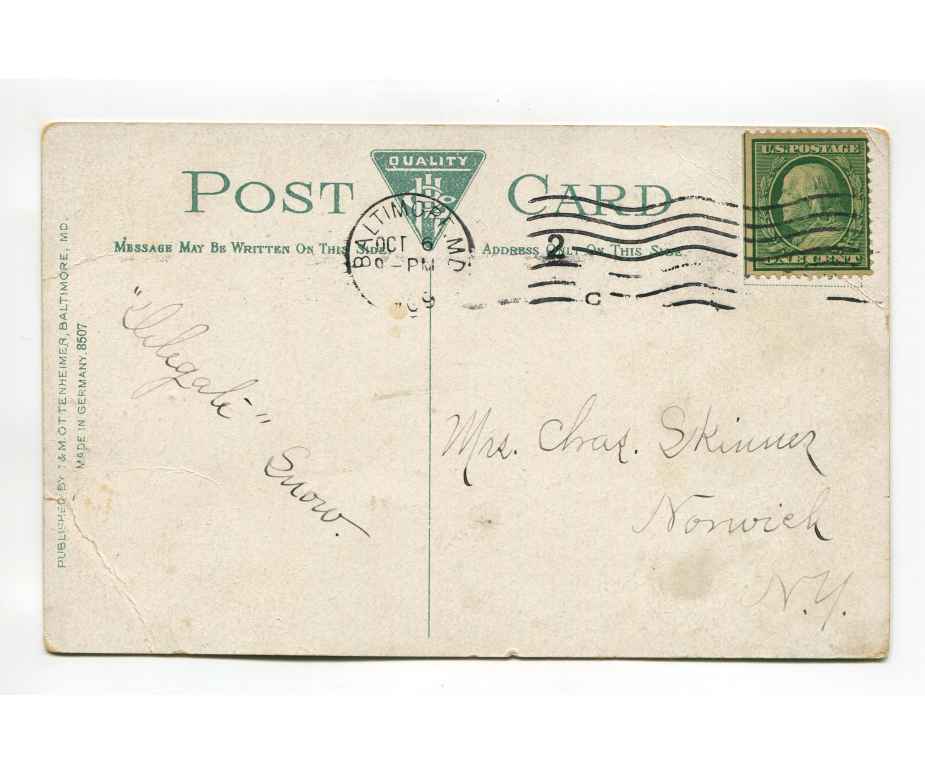 POST CARD
QUALITY
I & M O Co
MESSAGE MAY BE WRITTEN ON THIS SIDE
ADDRESS ONLY ON THIS SIDE
U.S. POSTAGE
ONE CENT
BALTIMORE, MD.
OCT 6
9-PM
09
2
C
PUBLISHED BY I & M. OTTENHEIMER, BALTIMORE, MD.
MADE IN GERMANY. 8507
"Delegate" Snow.
Mrs. Chas. Skinner
Norwich
N.Y.